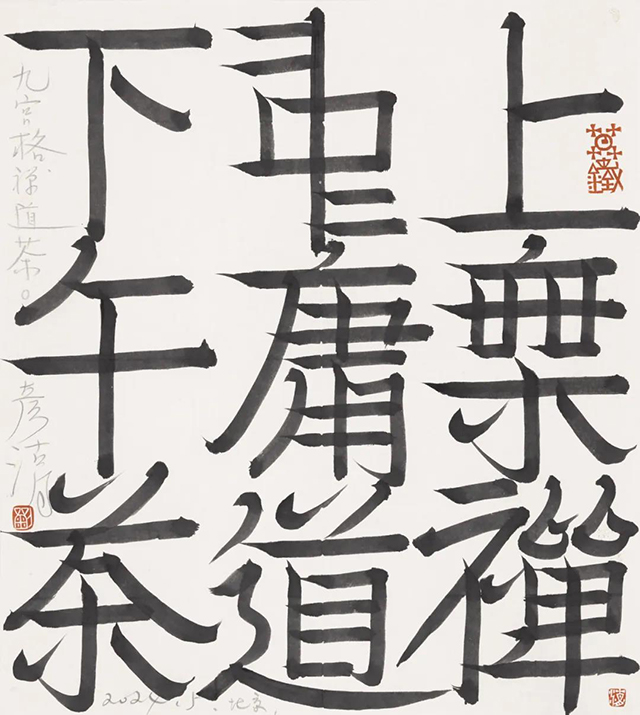 上無禪
中庸道
下午茶
九宫格禅道茶。
2024.5.北京.